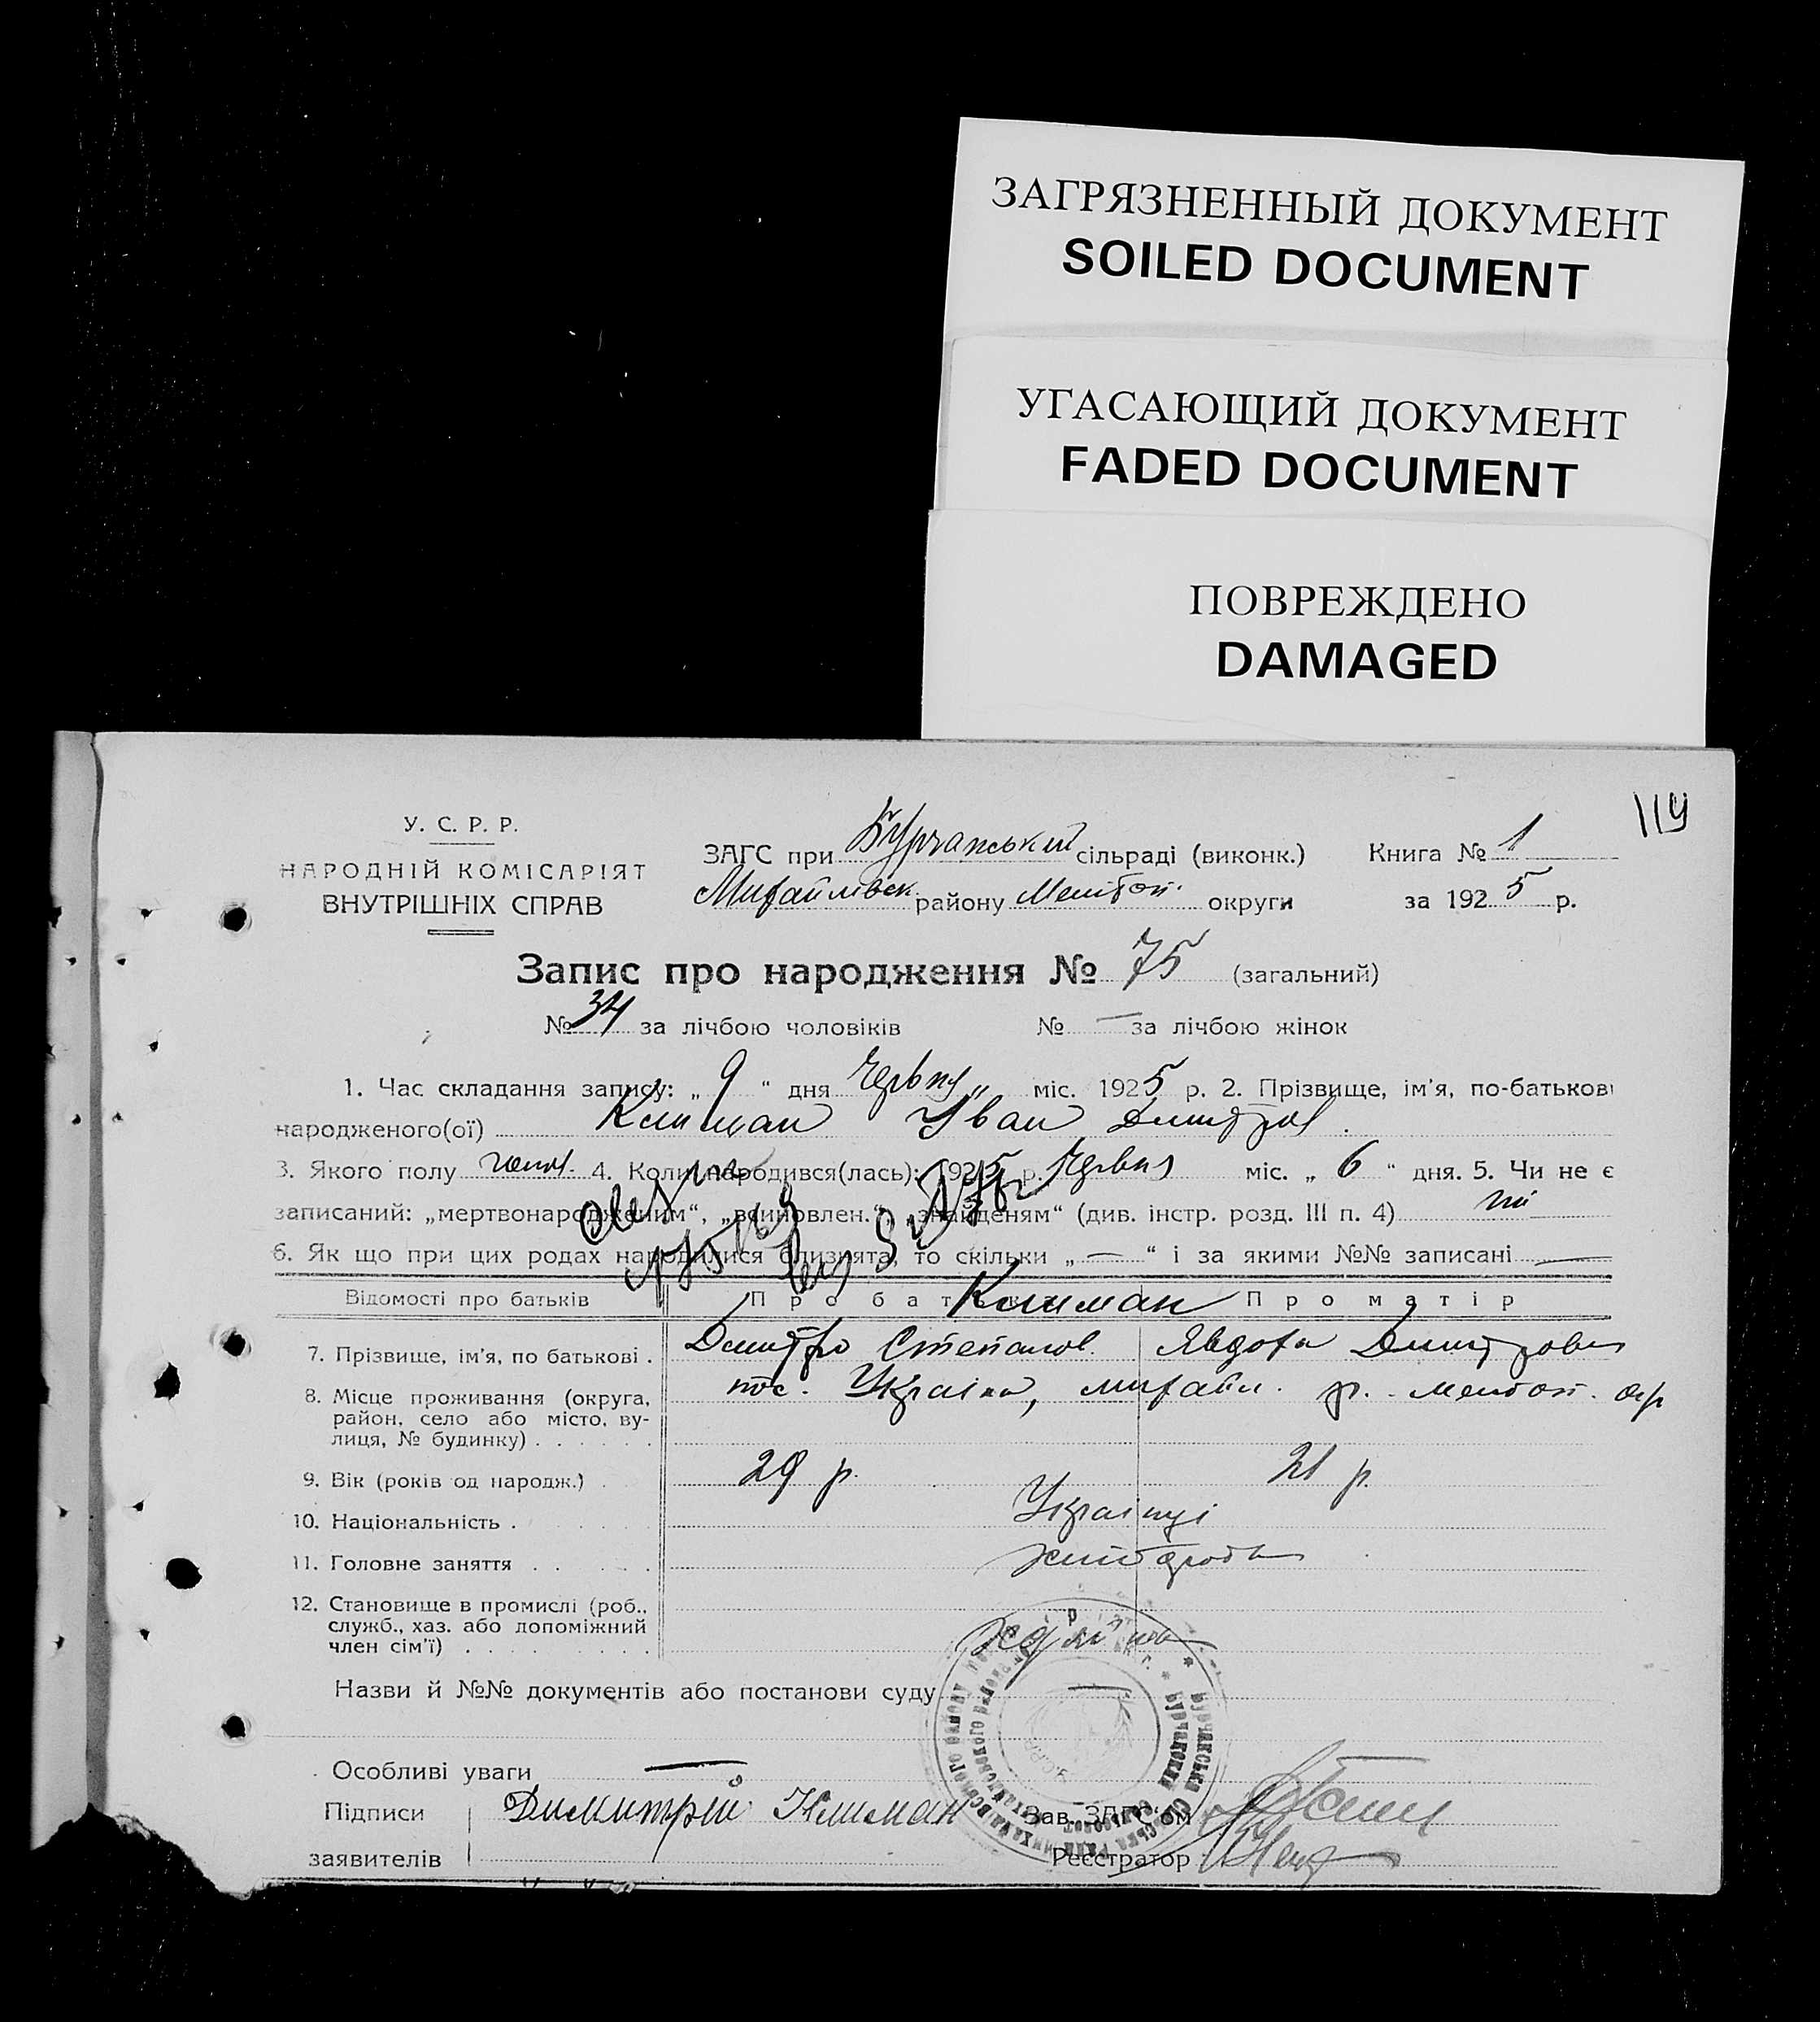 ЗАГРЯЗНЕННЫЙ ДОКУМЕНТ
SOILED DOCUMENT
УГАСАЮЩИЙ ДОКУМЕНТ
FADED DOCUMENT
ПОВРЕЖДЕНО
DAMAGED
119
У. С. Р. Р.
НАРОДНІЙ КОМІСАРІЯТ
ВНУТРІШНІХ СПРАВ
ЗАГС при Бурчанський сільраді (виконк.) Книга № 1
Михайлівск. району Мелітоп. округи за 1925 р.
Запис про народження № 75 (загальний)
№ 34 за лічбою чоловіків № — за лічбою жінок
1. Час складання запису: „ 9 “ дня Червня міс. 1925 р. 2. Прізвище, ім'я, по-батькові
народженого(ої) Климан Иван Дмитров.
3. Якого полу чолов. 4. Коли народився(лась): 1925 р. Червня міс. „ 6 “ дня. 5. Чи не є
записаний: „мертвонародженим“, „всиновлен.“, „знайденям“ (див. інстр. розд. III п. 4) ні
6. Як що при цих родах народилися близнята, то скільки „ — “ і за якими №№ записані —
Відомості про батьків Про батька Климан Про матір
7. Прізвище, ім'я, по батькові . Дмитро Степанов. Явдоха Дмитровна
8. Місце проживання (округа, пос. Україна, михайл. р. мелітоп. окр
район, село або місто, ву-
лиця, № будинку) . . . . . .
9. Вік (років од народж.) . 29 р. 21 р.
10. Національність . Українці
11. Головне заняття . . . . . хлібороби
12. Становище в промислі (роб.,
служб., хаз. або допоміжний
член сім'ї) . . . . . . . . .
Назви й №№ документів або постанови суду —
Особливі уваги —
Підписи Димитрій Климан Зав. ЗАГС'ом
заявителів Реєстратор